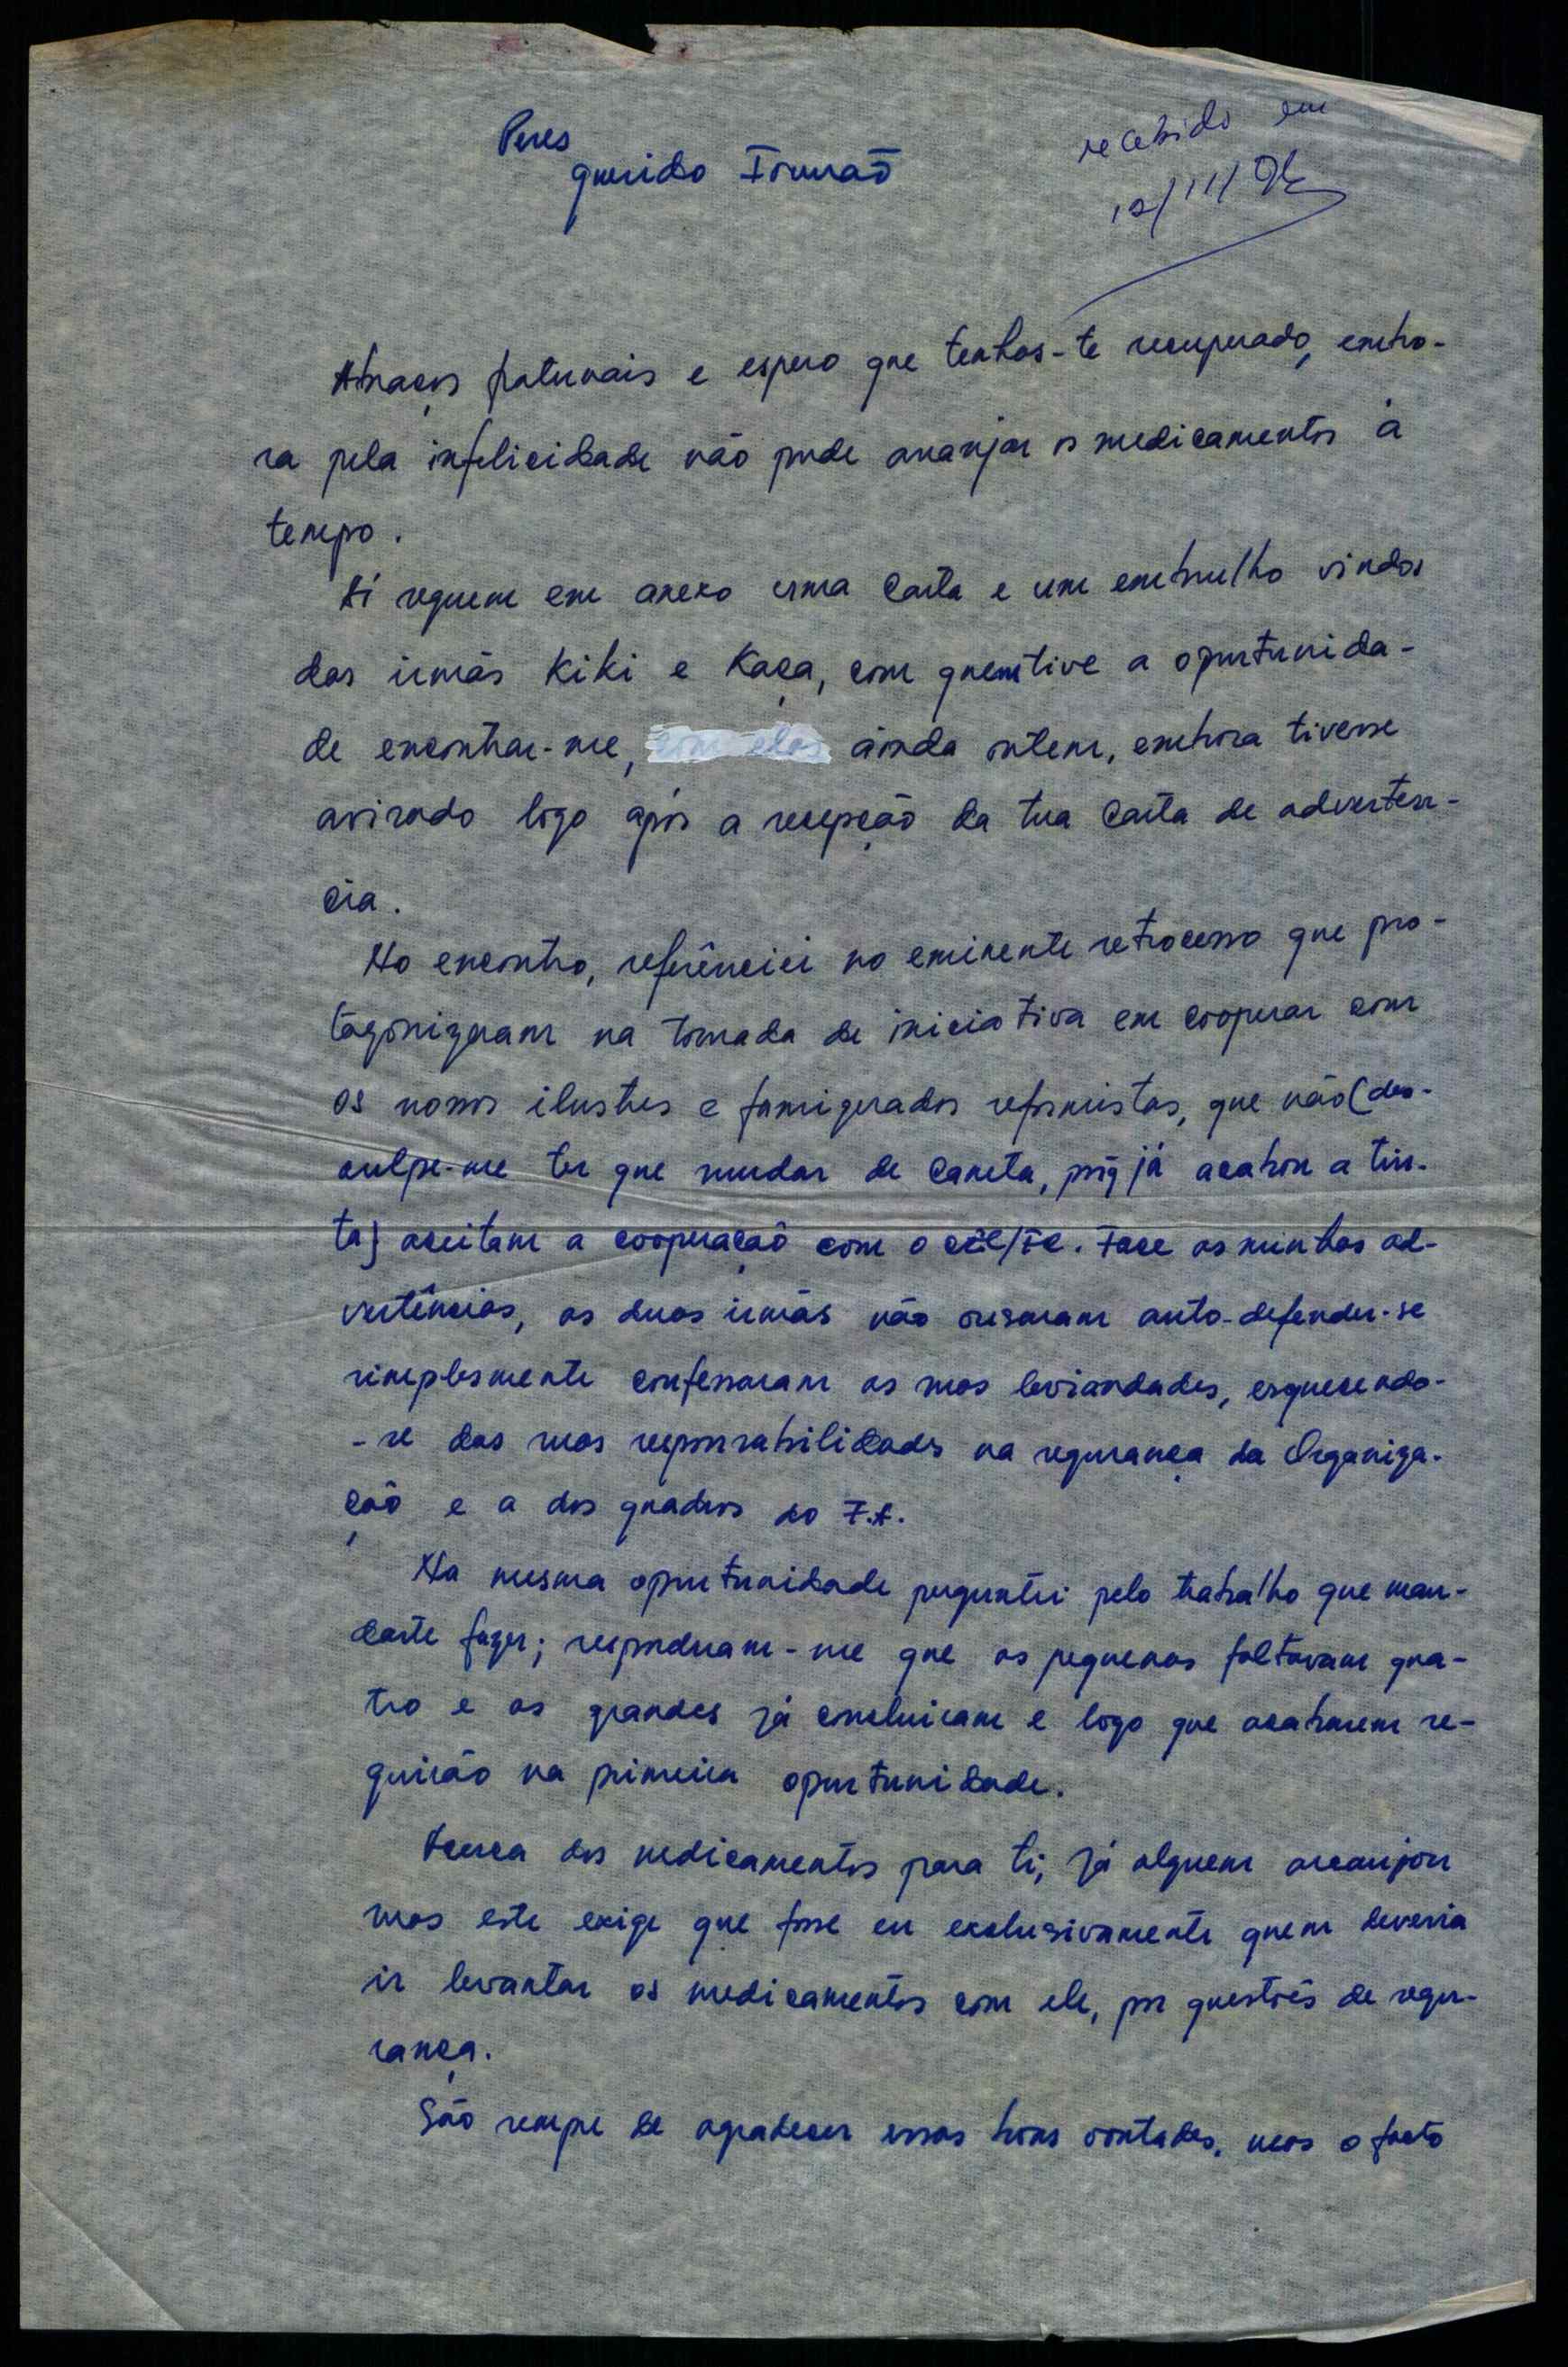 Peres
querido Irmão
recebido em
12/11/92
Abraços fraternais e espero que tenhas-te recuperado, embo-
ra pela infelicidade não pude arranjar os medicamentos a
tempo.
Aí seguem em anexo uma carta e um embrulho vindos
das irmãs Kiki e Kaça, com quem tive a oportunida-
de encontrar-me, com elas ainda ontem, embora tivesse
avisado logo após a recepção da tua carta de advertên-
cia.
No encontro, referênciei no eminente retrocesso que pro-
tagonizaram na tomada de iniciativa em cooperar com
os nossos ilustres e famigerados reformistas, que não (des-
culpe-me ter que mudar de caneta, porq já acabou a tin-
ta) aceitam a cooperação com o Face as minhas ad-
vertências, as duas irmãs não ousaram auto-defender-se
simplesmente confessaram as suas leviandades, esquecendo-
-se das suas responsabilidades na segurança da Organiza-
ção e a dos quadros do F.A.
Na mesma oportunidade perguntei pelo trabalho que man-
daste fazer; responderam-me que as pequenas faltavam qua-
tro e as grandes já concluiram e logo que acabarem se-
guirão na primeira oportunidade.
Acerca dos medicamentos para ti; já alguem arranjou
mas este exige que fosse eu exclusivamente quem deveria
ir levantar os medicamentos com ele, por questões de segu-
rança.
São sempre de agradecer essas boas vontades, mas o facto